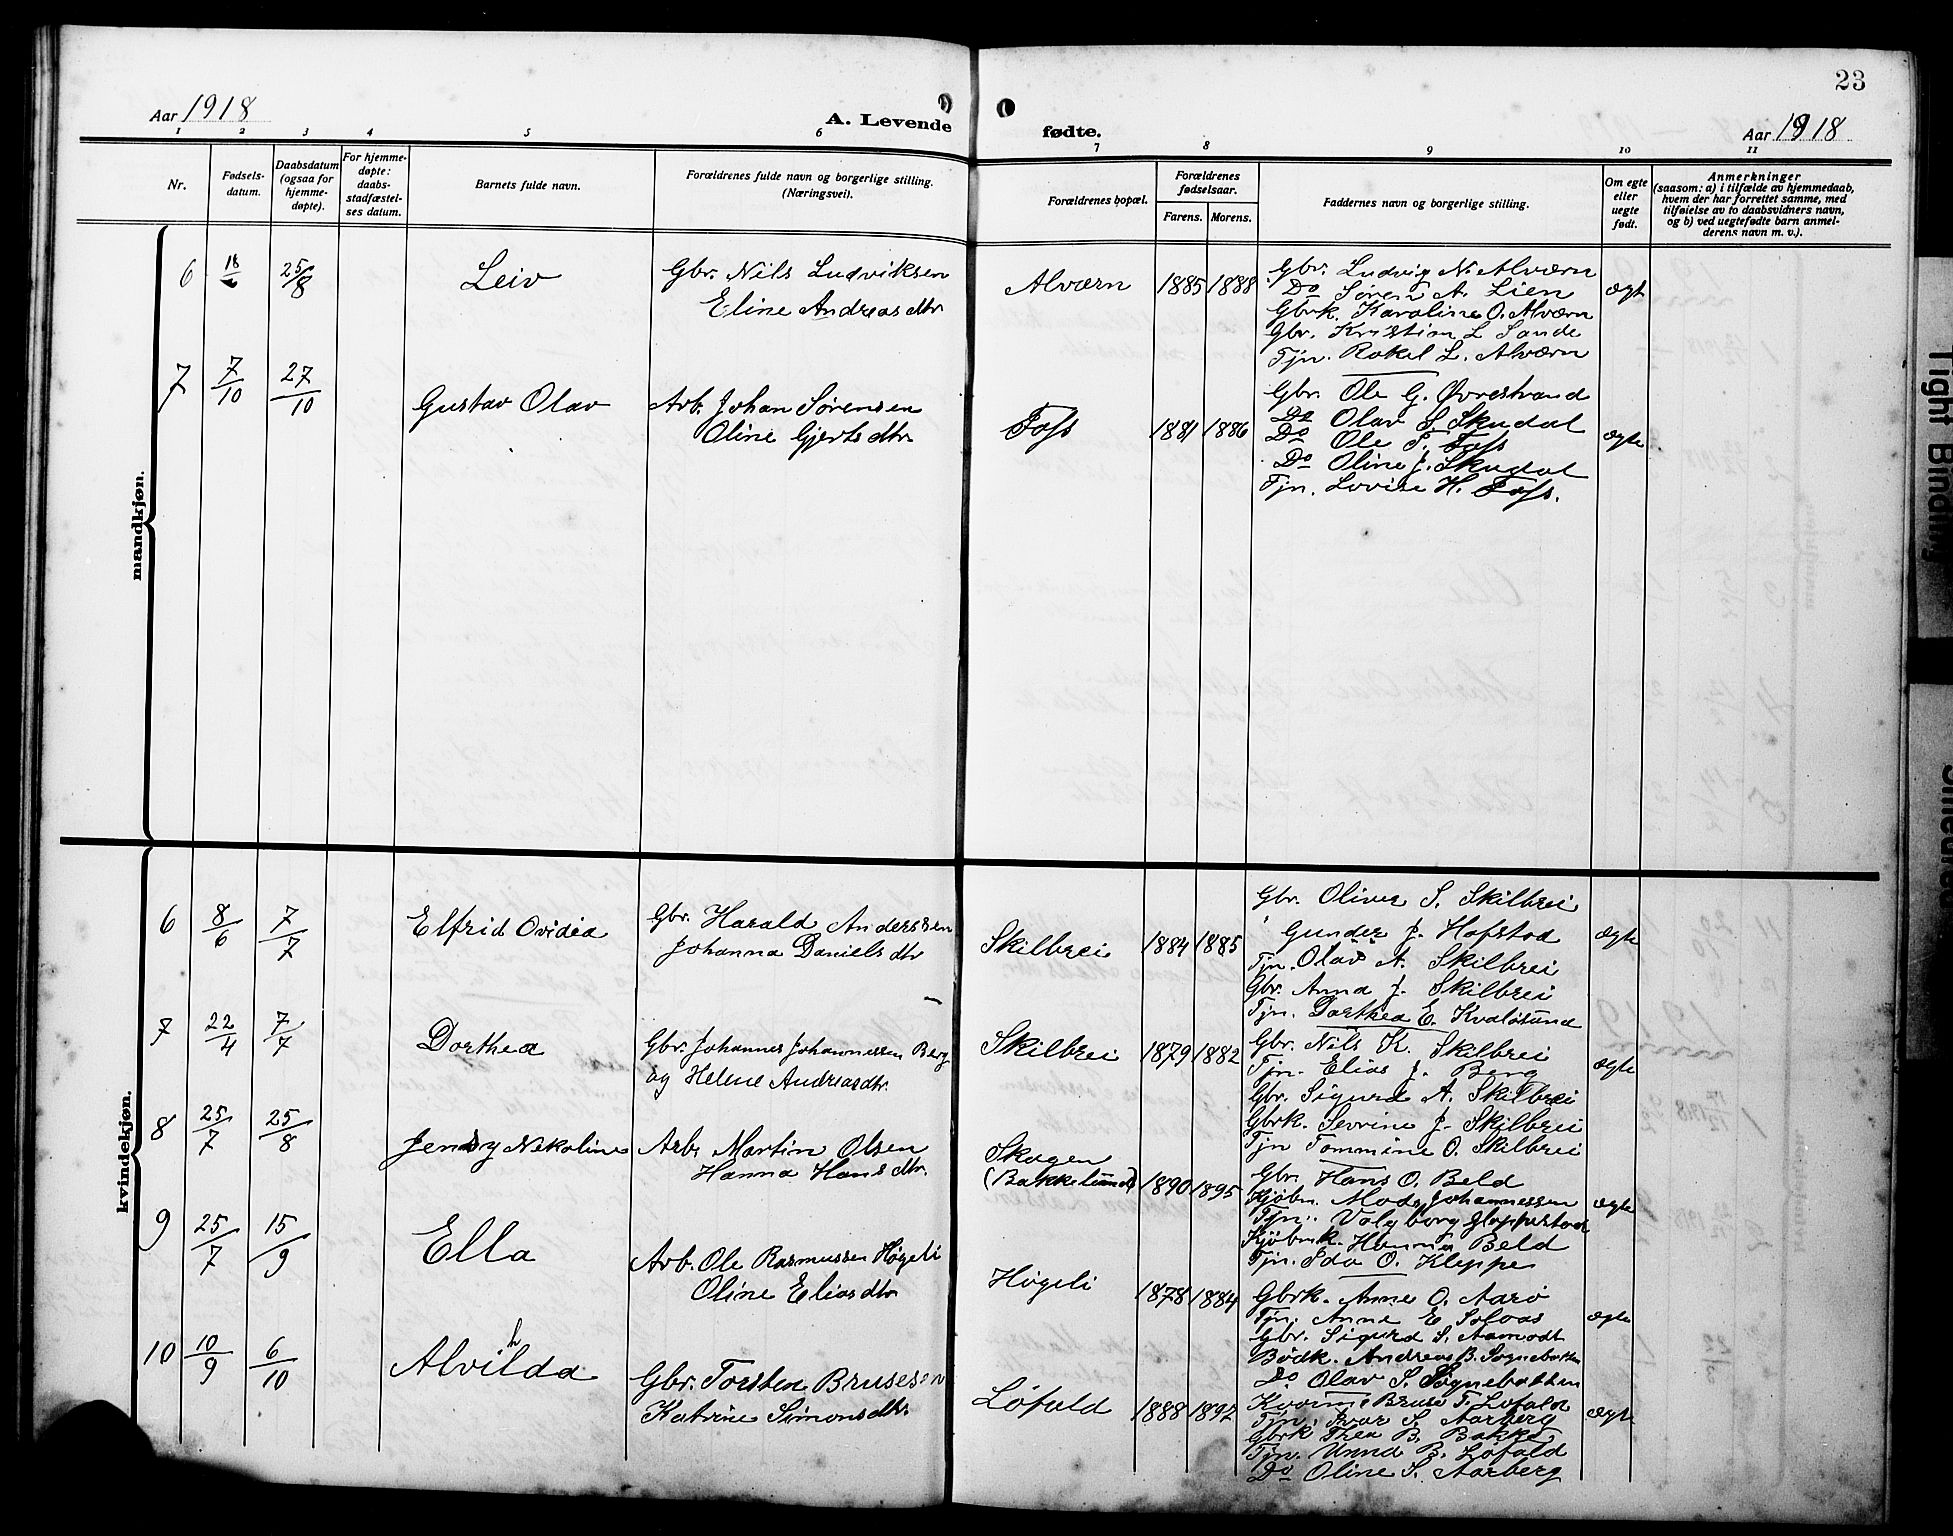 23
Aar 1918
A. Levende
fødte.
Aar 1918
1 2 3 4 5 6 7 8 9 10 11
Nr.
Fødsels-
datum.
Daabsdatum
(ogsaa for
hjemme-
døpte).
For hjemme-
døpte:
daabs-
stadfæstel-
ses datum.
Barnets fulde navn.
Forældrenes fulde navn og borgerlige stilling.
(Næringsvei).
Forældrenes bopæl.
Forældrenes
fødselsaar.
Farens. Morens.
Faddernes navn og borgerlige stilling.
Om egte
eller
uegte
født.
Anmerkninger
(saasom: a) i tilfælde av hjemmedaab,
hvem der har forrettet samme, med
tilføielse av to daabsvidners navn,
og b) ved uegtefødte barn anmel-
derens navn m. v.).
mandkjøn.
6 18 25/8 Leiv
Gbr. Nils Ludviksen
Eline Andreasdtr.
Alværn 1885 1888
Gbr. Ludvig N. Alværn
Do Søren A. Lien
Gbrk. Karoline O. Alværn
Gbr. Kristian L Sande
Tjn. Rakel L. Alværn
ægt
7 7/10 27/10 Gustav Olav
Arb. Johan Sørensen
Oline Gjertsdtr
Foss 1881 1886
Gbr. Ole G. Øvrestrand
Do Olav S. Skudal
Do Ole T. Foss
Do Oline J. Skudal
Tjn. Lovise H. Foss.
ægte
kvindekjøn.
6 8/6 7/7 Elfrid Ovidia
Gbr. Harald Anderssen
Johanna Danielsdtr
Skilbrei 1884 1885
Gbr. Oliver S. Skilbrei
Gunder J. Hofstad
Tjn. Olav A. Skilbrei
Gbr. Anna J. Skilbrei
Tjn. Dorthea E. Kvaløsund
ægte
7 22/4 7/7 Dorthea
Gbr. Johannes Johannessen Berg
og Helene Andreasdtr.
Skilbrei 1879 1882
Gbr. Nils K. Skilbrei
Tjn. Elias J. Berg
Gbr. Sigurd A. Skilbrei
Gbrk. Sevrine J. Skilbrei
Tjn Tommine O. Skilbrei
ægte
8 25/7 25/8 Jenny Nikoline
Arb. Martin Olsen
Hanna Hansdtr.
Skogen
(Bakkelund) 1890 1895
Gbr. Hans O. Beld
Kjøbm. Johannessen
Tjn. Valgborg
Kjøbmk. Hanna Beld
Tjn. Ida O. Kleppe
ægte
9 25/7 15/9 Ella
Arb. Ole Rasmussen Høgeli
Oline Eliasdtr
Høgeli 1878 1884
Gbrk. Anne O. Aarø
Tjn. Anne E Solaas
Gbr. Sigurd S. Aamodt
Bødk. Andreas B. Sognebotten
Do Olav S. Sognebotten
ægte
10 10/9 6/10 Alvilhda
Gbr. Torsten Brusesen
Katrine Simonsdtr.
Løfald 1888 1892
Bruse T. Løfald
Tjn. Ivar S. Aarberg
Gbrk Thea B. Bakke
Tjn. Unna B. Løfald
Do Oline S. Aarberg
ægte
Tight Binding